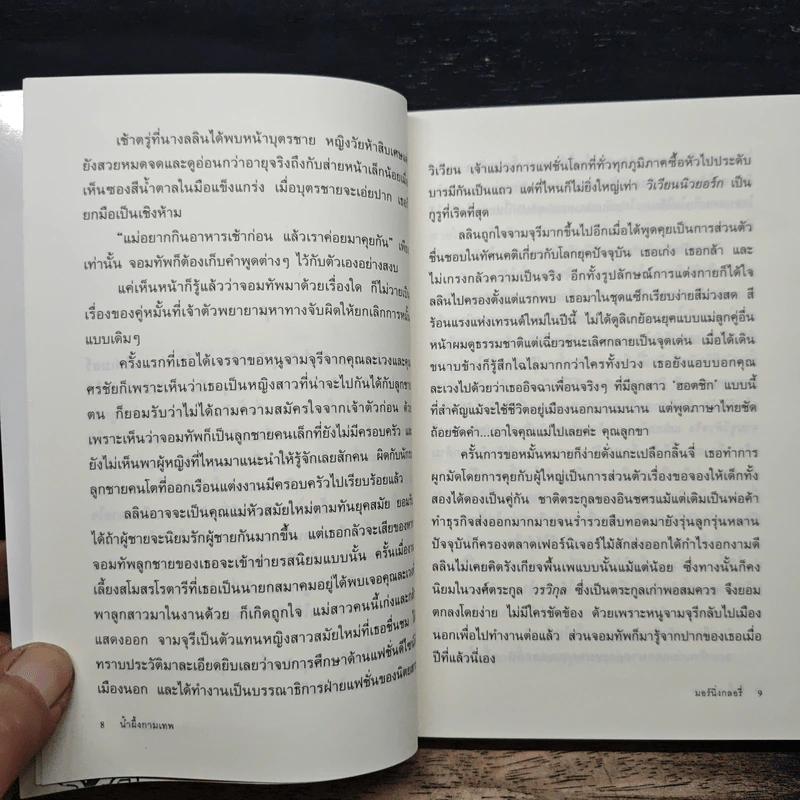 เช้าตรู่ที่นางลลินได้พบหน้าบุตรชาย หญิงวัยห้าสิบเศษ
ยังสวยหมดจดและดูอ่อนกว่าอายุจริงถึงกับส่ายหน้าเล็กน้อยเมื่อ
เห็นซองสีน้ำตาลในมือแข็งแกร่ง เมื่อบุตรชายจะเอ่ยปาก เธอก็
ยกมือเป็นเชิงห้าม
“แม่อยากกินอาหารเช้าก่อน แล้วเราค่อยมาคุยกัน”
เท่านั้น จอมทัพก็ต้องเก็บคำพูดต่างๆ ไว้กับตัวเองอย่างสงบ
แค่เห็นหน้าก็รู้แล้วว่าจอมทัพมาด้วยเรื่องใด ก็ไม่วายเป็น
เรื่องของคู่หมั้นที่เจ้าตัวพยายามหาทางจับผิดให้ยกเลิกการหมั้น
แบบเดิมๆ
ครั้งแรกที่เธอได้เจรจาขอหนูจามจุรีจากคุณละเวงและคุณ
ศรชัยก็เพราะเห็นว่าเธอเป็นหญิงสาวที่น่าจะไปกันได้กับลูกชาย
ตน ก็ยอมรับว่าไม่ได้ถามความสมัครใจจากเจ้าตัวก่อน ด้วย
เพราะเห็นว่าจอมทัพก็เป็นลูกชายคนเล็กที่ยังไม่มีครอบครัว และ
ยังไม่เห็นพาผู้หญิงที่ไหนมาแนะนำให้รู้จักเลยสักคน ผิดกับ
ลูกชายคนโตที่ออกเรือนแต่งงานมีครอบครัวไปเรียบร้อยแล้ว
ลลินอาจจะเป็นคุณแม่หัวสมัยใหม่ตามทันยุคสมัย ยอมรับ
ได้ถ้าผู้ชายจะนิยมรักผู้ชายกันมากขึ้น แต่เธอกลัวจะเสียของหาก
จอมทัพลูกชายของเธอจะเข้าข่ายรสนิยมแบบนั้น ครั้นเมื่องาน
เลี้ยงสโมสรโรตารีที่เธอเป็นนายกสมาคมอยู่ได้พบเจอคุณละเวงที่
พาลูกสาวมาในงานด้วย ก็เกิดถูกใจ แม่สาวคนนี้เก่งและกล้า
แสดงออก จามจุรีเป็นตัวแทนหญิงสาวสมัยใหม่ที่เธอชื่นชม
ทราบประวัติมาละเอียดยิบเลยว่าจบการศึกษาด้านแฟชั่นดีไซน์
เมืองนอก และได้ทำงานเป็นบรรณาธิการฝ่ายแฟชั่นของนิตยสาร
8 น้ำผึ้งกามเทพ
วิเวียน เจ้าแม่วงการแฟชั่นโลกที่ทั่วทุกภูมิภาคซื้อหัวไปประดับ
บารมีกันเป็นแถว แต่ที่ไหนก็ไม่ยิ่งใหญ่เท่า วิเวียนนิวยอร์ก เป็น
กูรูที่เริดที่สุด
ลลินถูกใจจามจุรีมากขึ้นไปอีกเมื่อได้พูดคุยเป็นการส่วนตัว
ชื่นชอบในทัศนคติเกี่ยวกับโลกยุคปัจจุบัน เธอเก่ง เธอกล้า และ
ไม่เกรงกลัวความเป็นจริง อีกทั้งรูปลักษณ์การแต่งกายก็ได้ใจ
ลลินไปครองตั้งแต่แรกพบ เธอมาในชุดแซ็กเรียบง่ายสีม่วงสด สี
ร้อนแรงแห่งเทรนด์ใหม่ในปีนี้ ไม่ได้ดูลิเกย้อนยุคแบบแม่ลูกคู่อื่น
หน้าผมดูธรรมชาติแต่เฉี่ยวชนะเลิศกลายเป็นจุดเด่น เมื่อได้เดิน
ขนาบข้างก็รู้สึกไฉไลมากกว่าใครทั้งปวง เธอยังแอบบอกคุณ
ละเวงไปด้วยว่าเธออิจฉาเพื่อนจริงๆ ที่มีลูกสาว ‘ฮอตชิก’ แบบนี้
ที่สำคัญแม้จะใช้ชีวิตอยู่เมืองนอกมานมนาน แต่พูดภาษาไทยชัด
ถ้อยชัดคำ...เอาใจคุณแม่ไปเลยค่ะ คุณลูกขา
ครั้นการขอหมั้นหมายก็ง่ายดั่งแกะเปลือกลิ้นจี่ เธอทำการ
ผูกมัดโดยการคุยกับผู้ใหญ่เป็นการส่วนตัวเรื่องขอจองให้เด็กทั้ง
สองได้ดองเป็นคู่กัน ชาติตระกูลของอินชศรแม้แต่เดิมเป็นพ่อค้า
ทำธุรกิจส่งออกมากมายจนร่ำรวยสืบทอดมายังรุ่นลูกรุ่นหลาน
ปัจจุบันก็ครองตลาดเฟอร์นิเจอร์ไม้สักส่งออกได้กำไรงอกงามดี
ลลินไม่เคยคิดรังเกียจพื้นเพแบบนั้นแม้แต่น้อย ซึ่งทางนั้นก็คง
นิยมในวงศ์ตระกูล วรวิกุล ซึ่งเป็นตระกูลเก่าพอสมควร จึงยอม
ตกลงโดยง่าย ไม่มีใครขัดข้อง ด้วยเพราะหนูจามจุรีกลับไปเมือง
นอกเพื่อไปทำงานต่อแล้ว ส่วนจอมทัพก็มารู้จากปากของเธอเมื่อ
ปีที่แล้วนี่เอง
มอร์นิ่งกลอรี่ 9